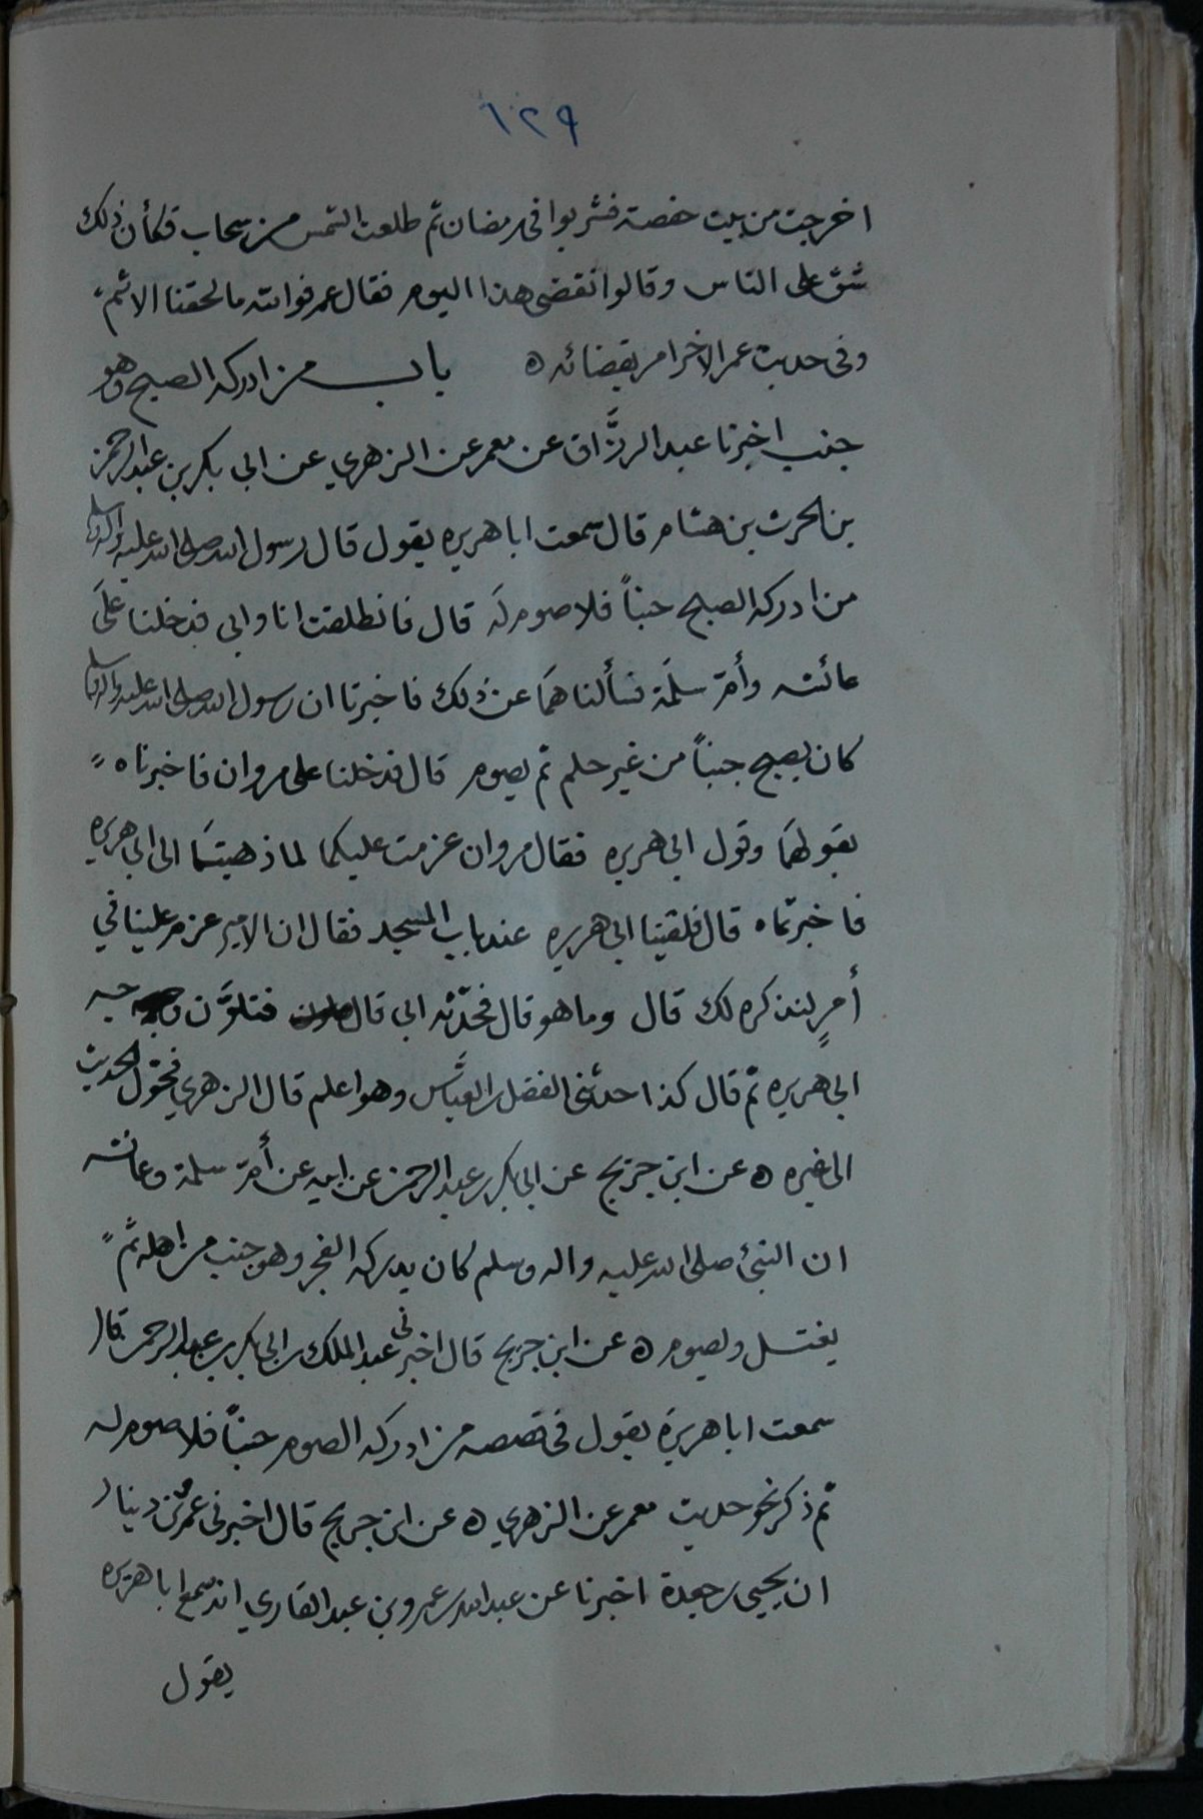 ١٢٩
اخرجت من بيت حفصة فشربوا في رمضان ثم طلعت الشمس من سحاب فكأن ذلك
شق على الناس وقالوا نقضي هذا اليوم فقال عمر فوالله ما لحقنا الاثم
وفي حديث عمر الاخر امر بقضائه ه باب من ادركه الصبح وهو
جنب اخبرنا عبد الرزَّاق عن معمر عن الزهري عن ابي بكر بن عبد الرحمن
بن الحرث بن هشام قال سمعت ابا هريره يقول قال رسول الله صلى الله عليه واله وسلم
من ادركه الصبح جنباً فلا صوم له قال فانطلقت انا وابي فدخلنا على
عائشه وأم سلمة فسألناهما عن ذلك فاخبرتا ان رسول الله صلى الله عليه واله وسلم
كان يصبح جنباً من غير حلم ثم يصوم قال فدخلنا على مروان فاخبرناه
بقولهما وقول ابي هريره فقال مروان عزمت عليكما لما ذهبتما الى ابي هريره
فاخبرتماه قال فلقينا ابي هريره عند باب المسجد فقال ان الامير عزم علينا في
أمرٍ لنذكره لك قال وما هو قال فحدّثه ابي قال فتلوَّن وجه
ابي هريره ثم قال كذا حدثني الفضل بن العبَّاس وهو اعلم قال الزهري فحوّل الحديث
الى غيره ه عن ابن جريج عن ابي بكر بن عبد الرحمن عن ابيه عن أم سلمة وعائشه
ان النبيّ صلى الله عليه واله وسلم كان يدركه الفجر وهو جنب من اهله ثمَّ
يغتسل ويصوم ه عن ابن جريج قال اخبرني عبد الملك بن ابي بكر بن عبد الرحمن قال
سمعت ابا هريرة يقول في قصصه من ادركه الصوم جنباً فلا صوم له
ثم ذكر نحو حديث معمر عن الزهري ه عن ابن جريج قال اخبرني عمرو بن دينار
ان يحيى بن جعدة اخبرنا عن عبد الله بن عمرو بن عبد القاري انه سمع ابا هريره
يقول